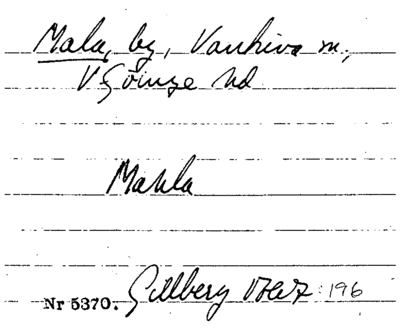 Mala, by, Vankiva sn,
V Göinge hd
Mahla
Gillberg 196
Nr 5370.